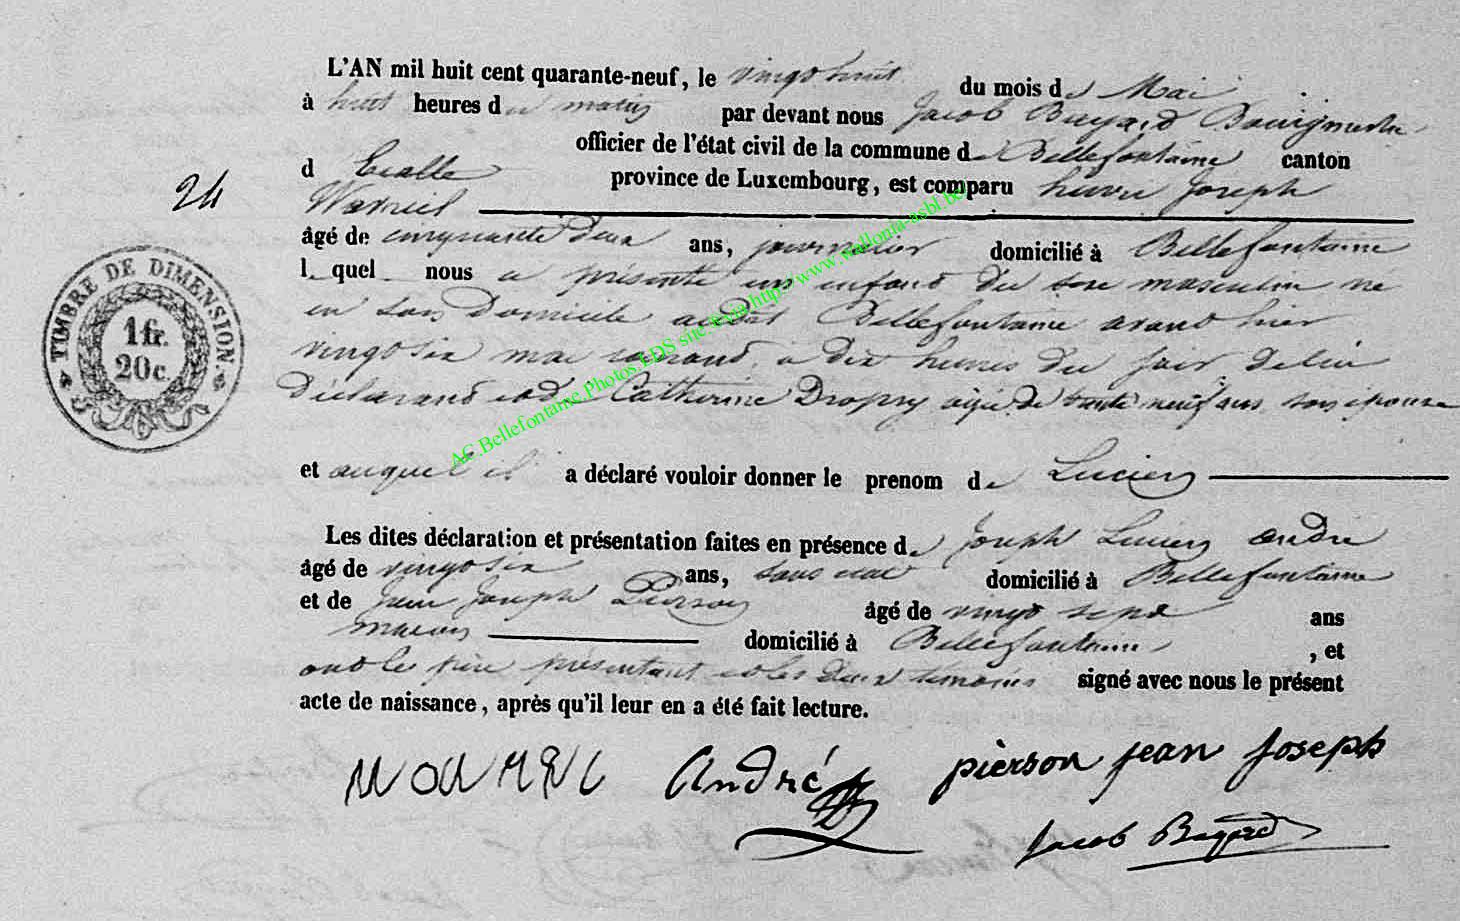 L'AN mil huit cent quarante-neuf, le vingt huit du mois de Mai
à huit heures du matin par devant nous Jacob Bagard Bourgmestre
officier de l'état civil de la commune de Bellefontaine canton
d'Etalle province de Luxembourg, est comparu henri Joseph
24
âgé de cinquante deux ans, journalier domicilié à Bellefontaine
lequel nous a présenté un enfant du sexe masculin né
en son Domicile audit Bellefontaine avant hier
vingt six mai courant, a dix heures du soir de lui
Déclarant et de Catherine Dropsy agée de trente neuf ans son épouse
et auquel il a déclaré vouloir donner le prenom de Lucien
Les dites déclaration et présentation faites en présence de Joseph Lucien andré
âgé de vingt six ans, sans état domicilié à Bellefontaine
et de Jean Joseph Pierson âgé de vingt sept ans
maçon domicilié à Bellefontaine, et
ont le père présentant et les deux témoins signé avec nous le présent
acte de naissance, après qu'il leur en a été fait lecture.
André pierson jean Joseph
Jacob Bagard
TIMBRE DE DIMENSION.
1 fr.
20 c.
AC Bellefontaine Photos LDS site Luxia http://www.wallonia-asbl.be/